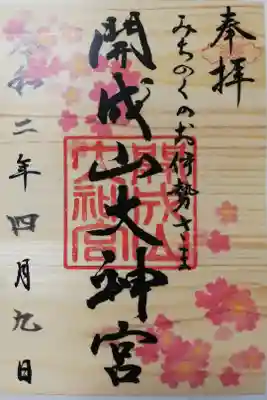 奉拝
みちのくのお伊勢さま
開成山大神宮
開成山大神宮
令和二年四月九日